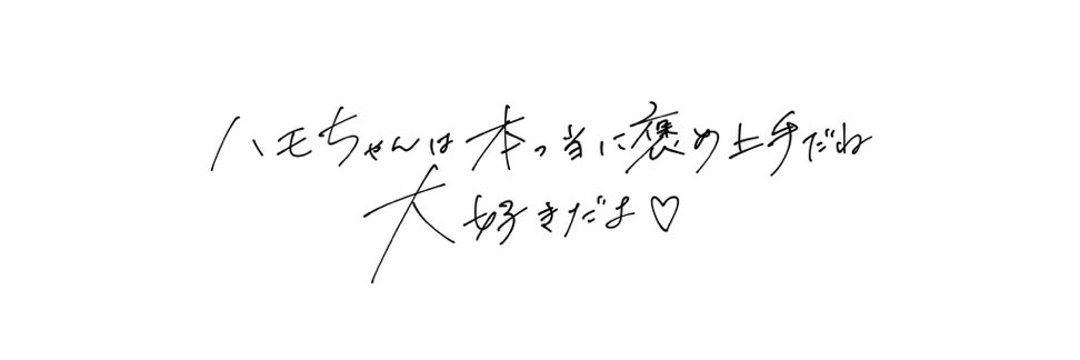 ハモちゃんは本っ当に褒め上手だね
大好きだよ♡